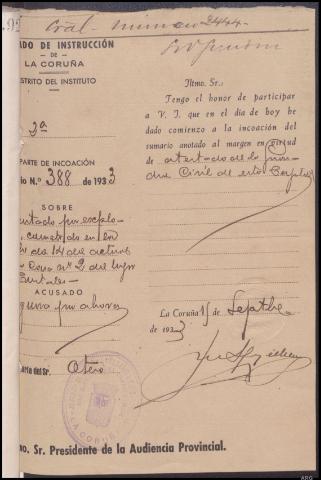 92
Cral. número 2444.
ADO DE INSTRUCCIÓN
- DE -
LA CORUÑA
STRITO DEL INSTITUTO
3ª
PARTE DE INCOACIÓN
io N.º 388 de 1933
SOBRE
por explo-
en
de 14 del actual
Casa nº 2 del lugar
ACUSADO
por ahora
aría del Sr. Otero
Iltmo. Sr.:
Tengo el honor de participar
a V. I. que en el día de hoy he
dado comienzo a la incoación del
sumario anotado al margen en virtud
de atestado de la Guar-
dia Civil de esta Capital
La Coruña 15 de Septbre
de 1933
no. Sr. Presidente de la Audiencia Provincial.